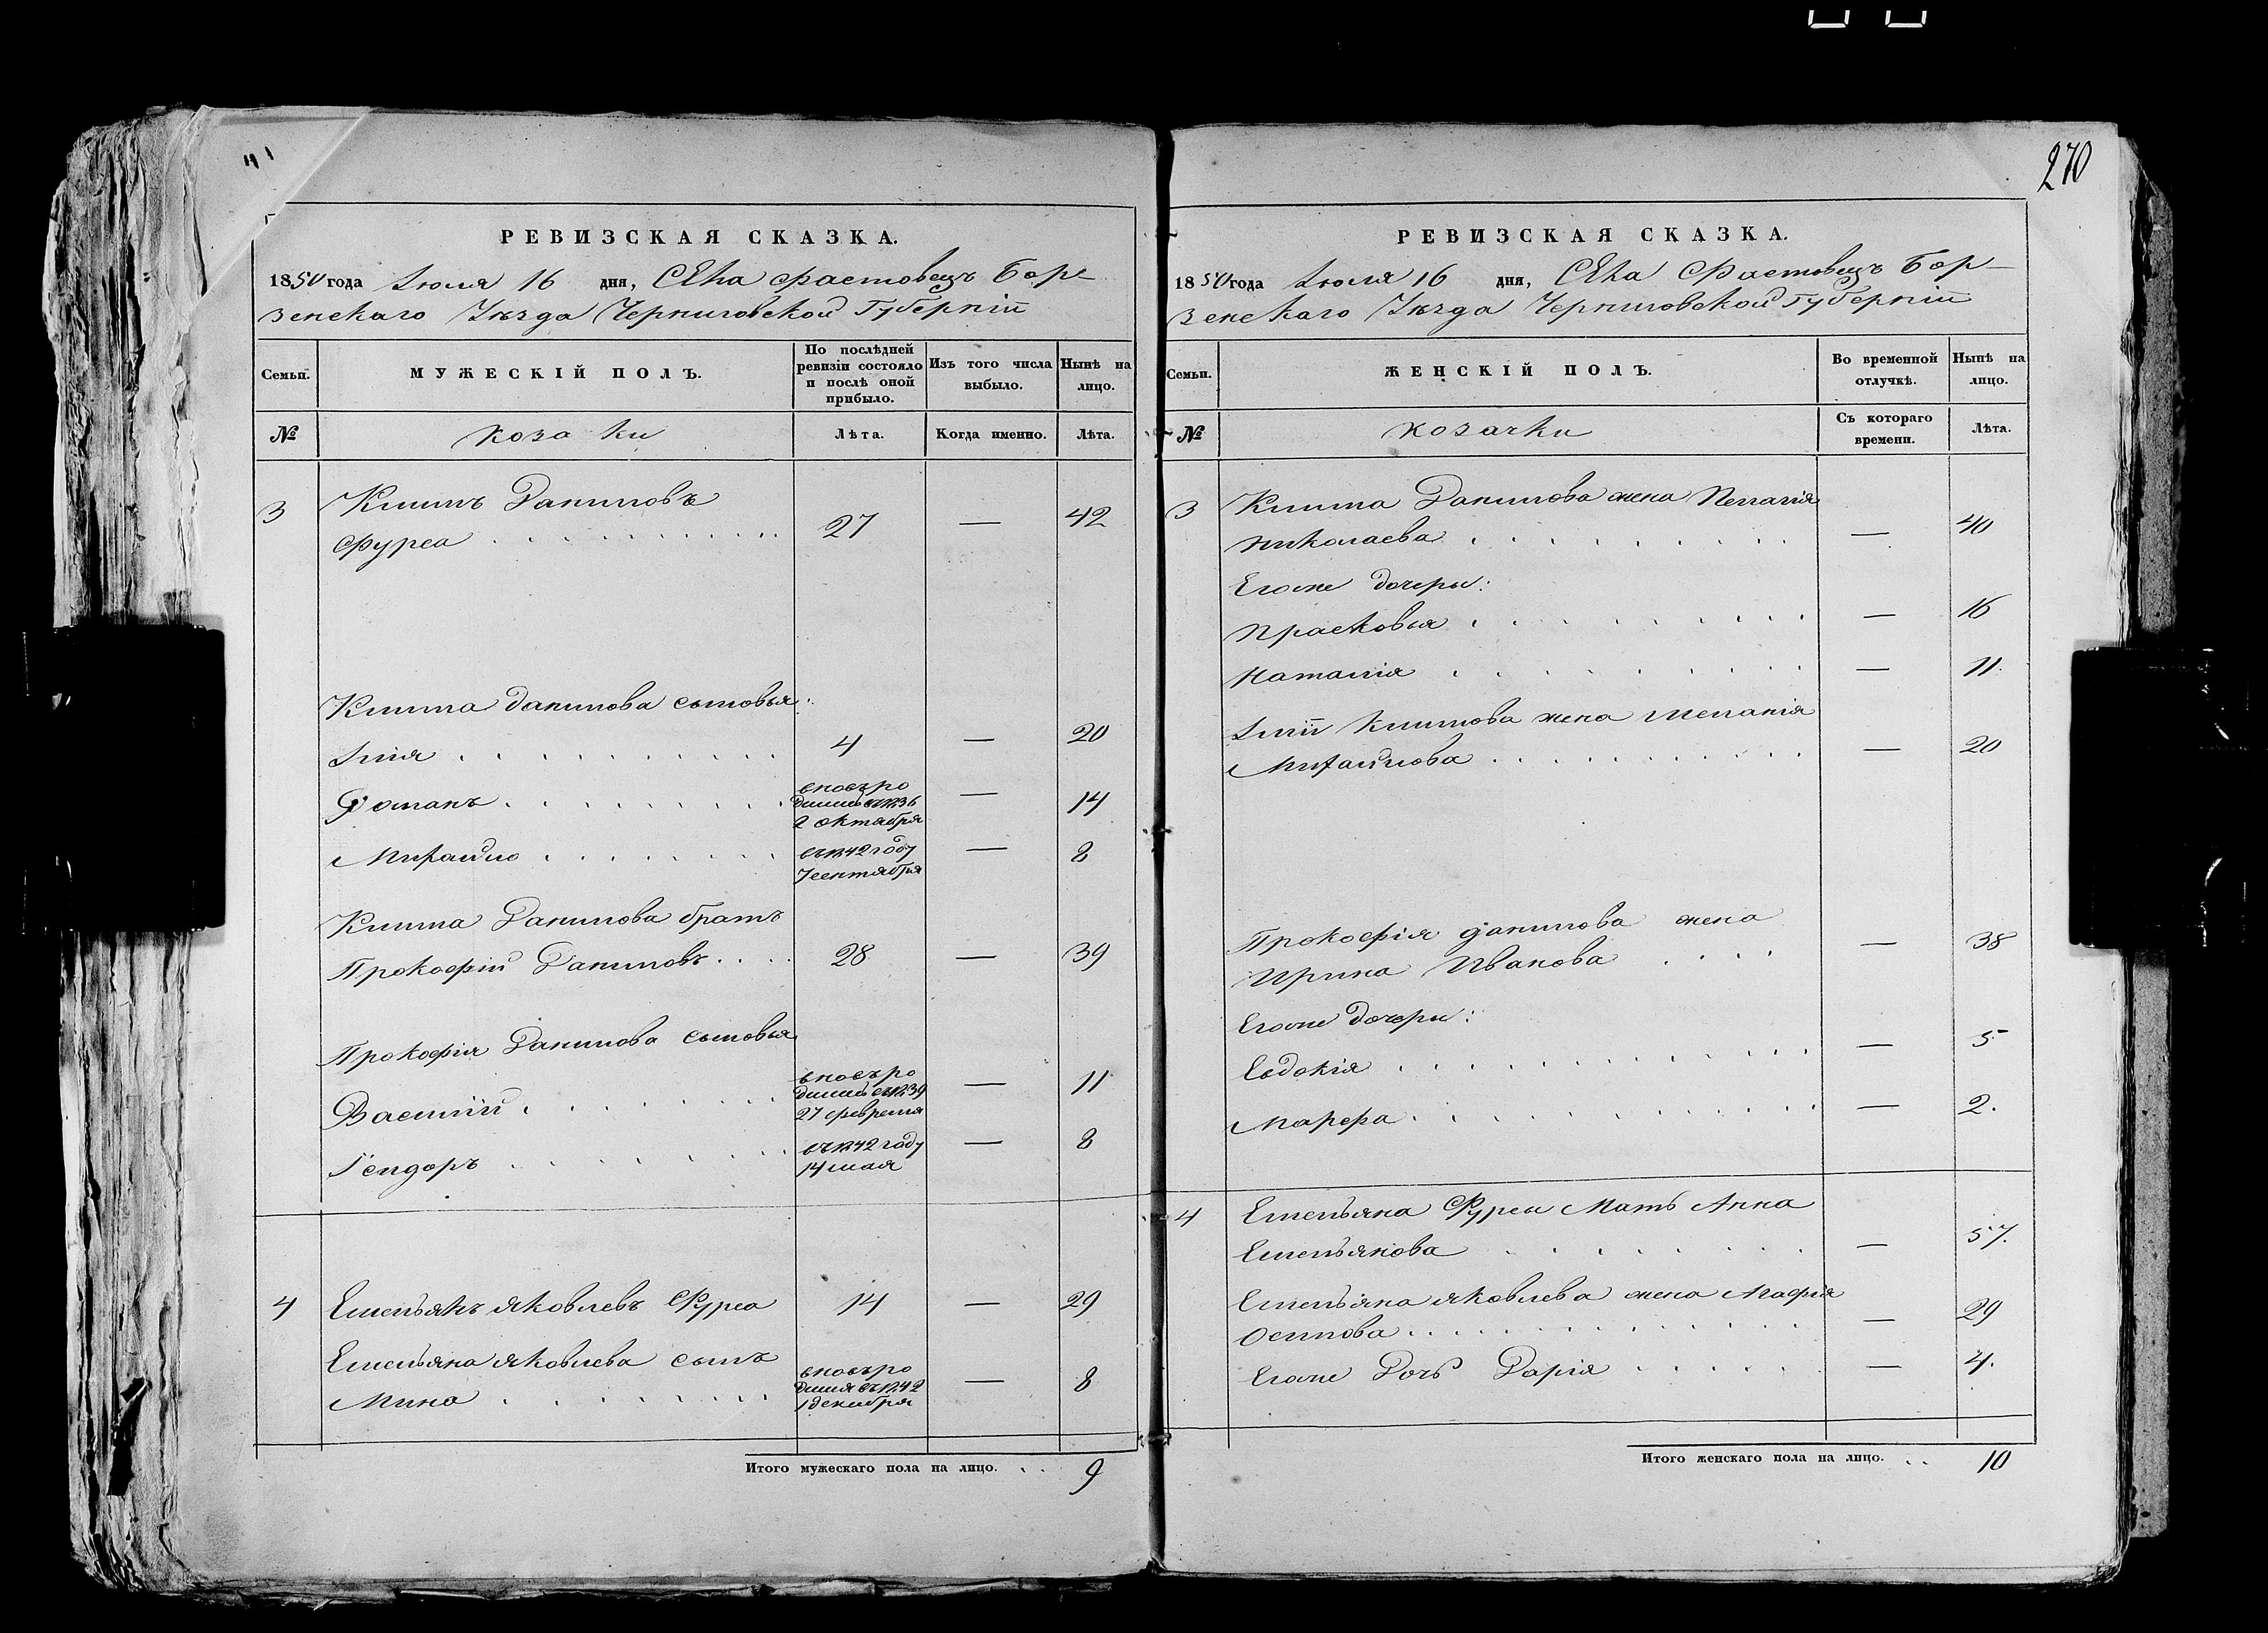 270
РЕВИЗСКАЯ СКАЗКА.
1850 года Іюля 16 дня, Села Фастовецъ Бор-
зенскаго Уѣзда Черниговской Губерніи
Семьи.
МУЖЕСКІЙ ПОЛЪ.
По послѣдней ревизіи состояло и послѣ оной прибыло.
Изъ того числа выбыло.
Нынѣ на лицо.
№
козаки
Лѣта.
Когда именно.
Лѣта.
3 Климъ Даниловъ
Фурса 27 — 42
Клима данилова сыновья:
Илія 4 — 20
Романъ вновь ро
дился въ 1836
2 октября — 14
Михайло въ 1842 году
7 сентября — 8
Клима Данилова братъ
Прокофій Даниловъ 28 — 39
Прокофія Данилова сыновья
Василій вновь ро
дился въ 1839
27 февраля — 11
Феидоръ въ 1842 году
14 мая — 8
4 Емельянъ Яковлевъ Фурса 14 — 29
Емельяна Яковлева сынъ
Мина вновь ро
дился въ 1842
1 декабря — 8
Итого мужескаго пола на лицо. . . 9
РЕВИЗСКАЯ СКАЗКА.
1850 года Іюля 16 дня, Села Фастовецъ Бор-
зенскаго Уѣзда Черниговской Губерніи
Семьи.
ЖЕНСКІЙ ПОЛЪ.
Во временной отлучкѣ.
Нынѣ на лицо.
№
козачки
Съ котораго времени.
Лѣта.
3 Клима Данилова жена Пелагія
Николаева — 40
Егоже дочеры:
Прасковья — 16
Наталія — 11.
Иліи Климова жена Меланія
Михайлова — 20
Прокофія данилова жена
Ирина Иванова — 38
Егоже дочери:
Евдокія — 5
Марфа — 2.
4 Емельяна Фурсы Мать Анна
Емельянова — 57.
Емельяна Яковлева жена Мафія
Осипова — 29
Егоже Дочь Дарія — 4.
Итого женскаго пола на лицо. . . 10